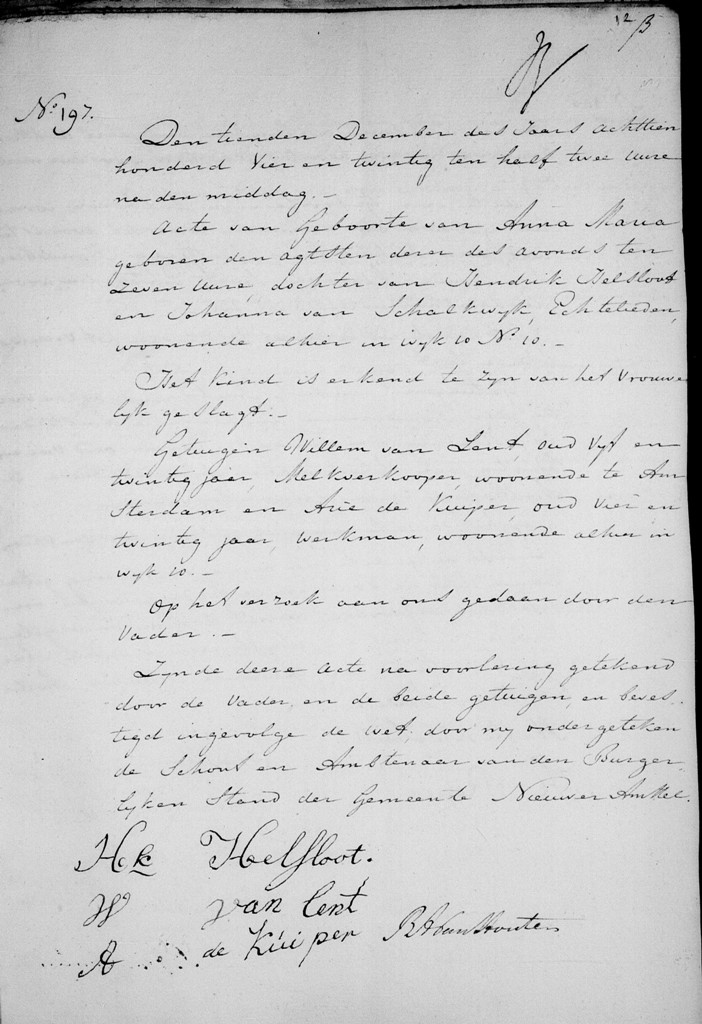 12
No. 197.
Den tienden December des Jaars achttien
honderd Vier en twintig ten half twee uure
na den middag. —
Acte van Geboorte van Anna Maria
geboren den agtsten dezer des avonds ten
Zeven uure, dochter van Hendrik Helsloot
en Johanna van Schalkwyk, Echtelieden,
woonende alhier in wyk 10 No 10. —
Het Kind is erkend te zyn van het Vrouwe
lyk geslagt. —
Getuigen Willem van Lent, oud Vyf en
twintig jaar, Melkverkooper, woonende te Am
sterdam en Arie de Kuiper, oud Vier en
twintig jaar, werkman, woonende alhier in
wyk 10. —
Op het verzoek aan ons gedaan door den
Vader. —
Zynde deeze Acte na voorlezing getekend
door de Vader, en de beide getuigen, en beves-
tigd ingevolge de wet, door my ondergeteken
de Schout en Ambtenaar van den Burger
lyken Stand der Gemeente Nieuwer Amstel.
Hk Helsloot.
W van Lent
A de Kuiper
van Houten